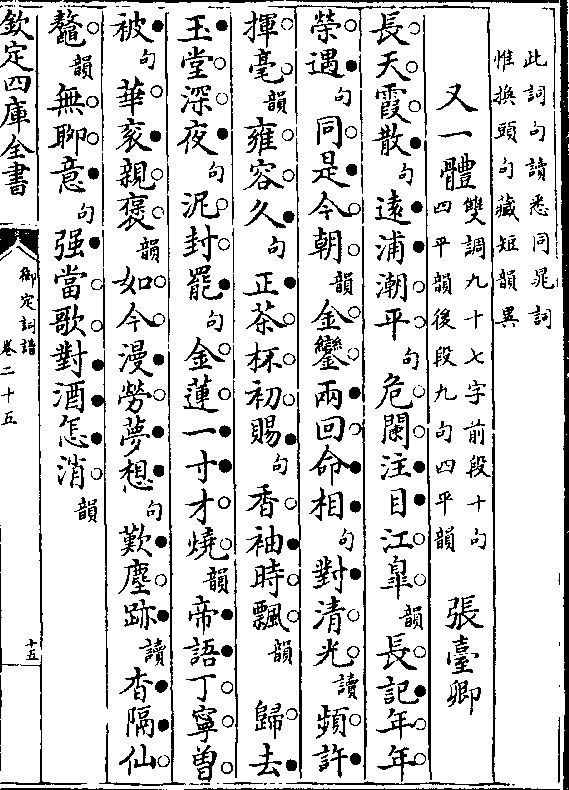 此詞句讀悉同晁詞
惟換頭句藏短韻異
又一體 雙調九十七字前段十句
四平韻後段九句四平韻 張臺卿
長天霞散句遠浦潮平句危闌注目江臯韻長記年年
榮遇句同是今朝韻金鑾兩回命相句對清光讀頻許
揮毫韻雍容久句正茶杯初賜句香袖時飄韻 歸去
玉堂深夜句泥封罷句金蓮一寸才燒韻帝語丁寧曾
被句華衮親褒韻如今漫勞夢想句歎塵跡讀杳隔仙
鼇韻無聊意句强當歌對酒怎消韻
欽定四庫全書
御定詞譜
卷二十五
十五